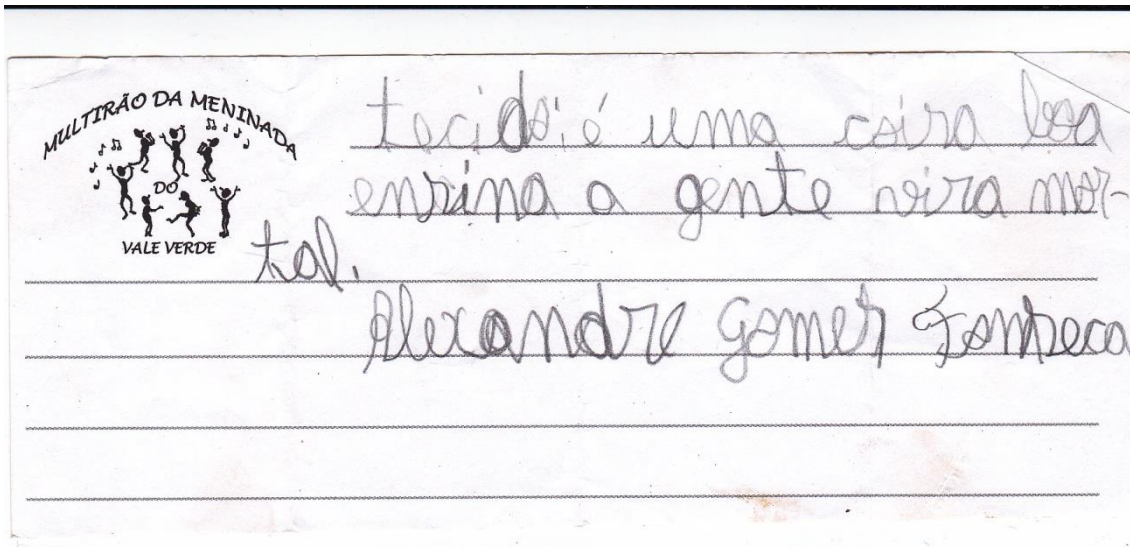 MULTIRÃO DA MENINADA
DO
VALE VERDE
tecido: é uma coisa boa
ensina a gente vira mor-
tal.
Alexandre Gomes Fonseca